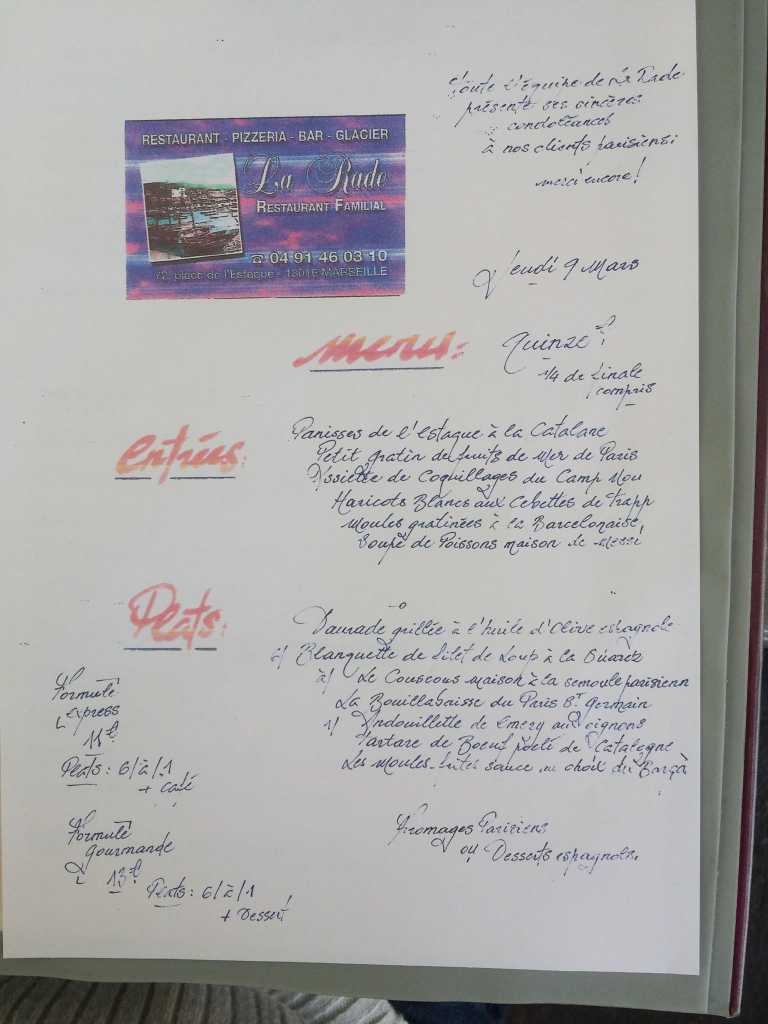 Toute l'équipe de La Rade
présente ses sincères
condoléances
à nos clients parisiens!
merci encore!
RESTAURANT - PIZZERIA - BAR - GLACIER
La Rade
RESTAURANT FAMILIAL
☎ 04 91 46 03 10
72, place de l'Estaque - 13016 MARSEILLE
Jeudi 9 Mars
menu:
Quinze €!
1/4 de Finale
compris
entrées:
Panisses de l'Estaque à la Catalane
Petit gratin de fruits de Mer de Paris
Assiette de Coquillages du Camp Nou
Haricots Blancs aux Cebettes de Trapp
Moules gratinées à la Barcelonaise
Soupe de Poissons maison de Messi
Plats:
Daurade grillée à l'huile d'Olive espagnole
6) Blanquette de Filet de Loup à la Suarez
2) Le Couscous maison à la semoule parisienn
La Bouillabaisse du Paris St Germain
1) Andouillette de Emery aux oignons
Tartare de Boeuf poêlé de Catalogne
Les Moules-frites sauce au choix du Barça
Formule
express
11€
Plats: 6/2/1
+ Café
Formule
gourmande
13€
Plats: 6/2/1
+ Dessert
Fromages Parisiens
ou Desserts espagnols.